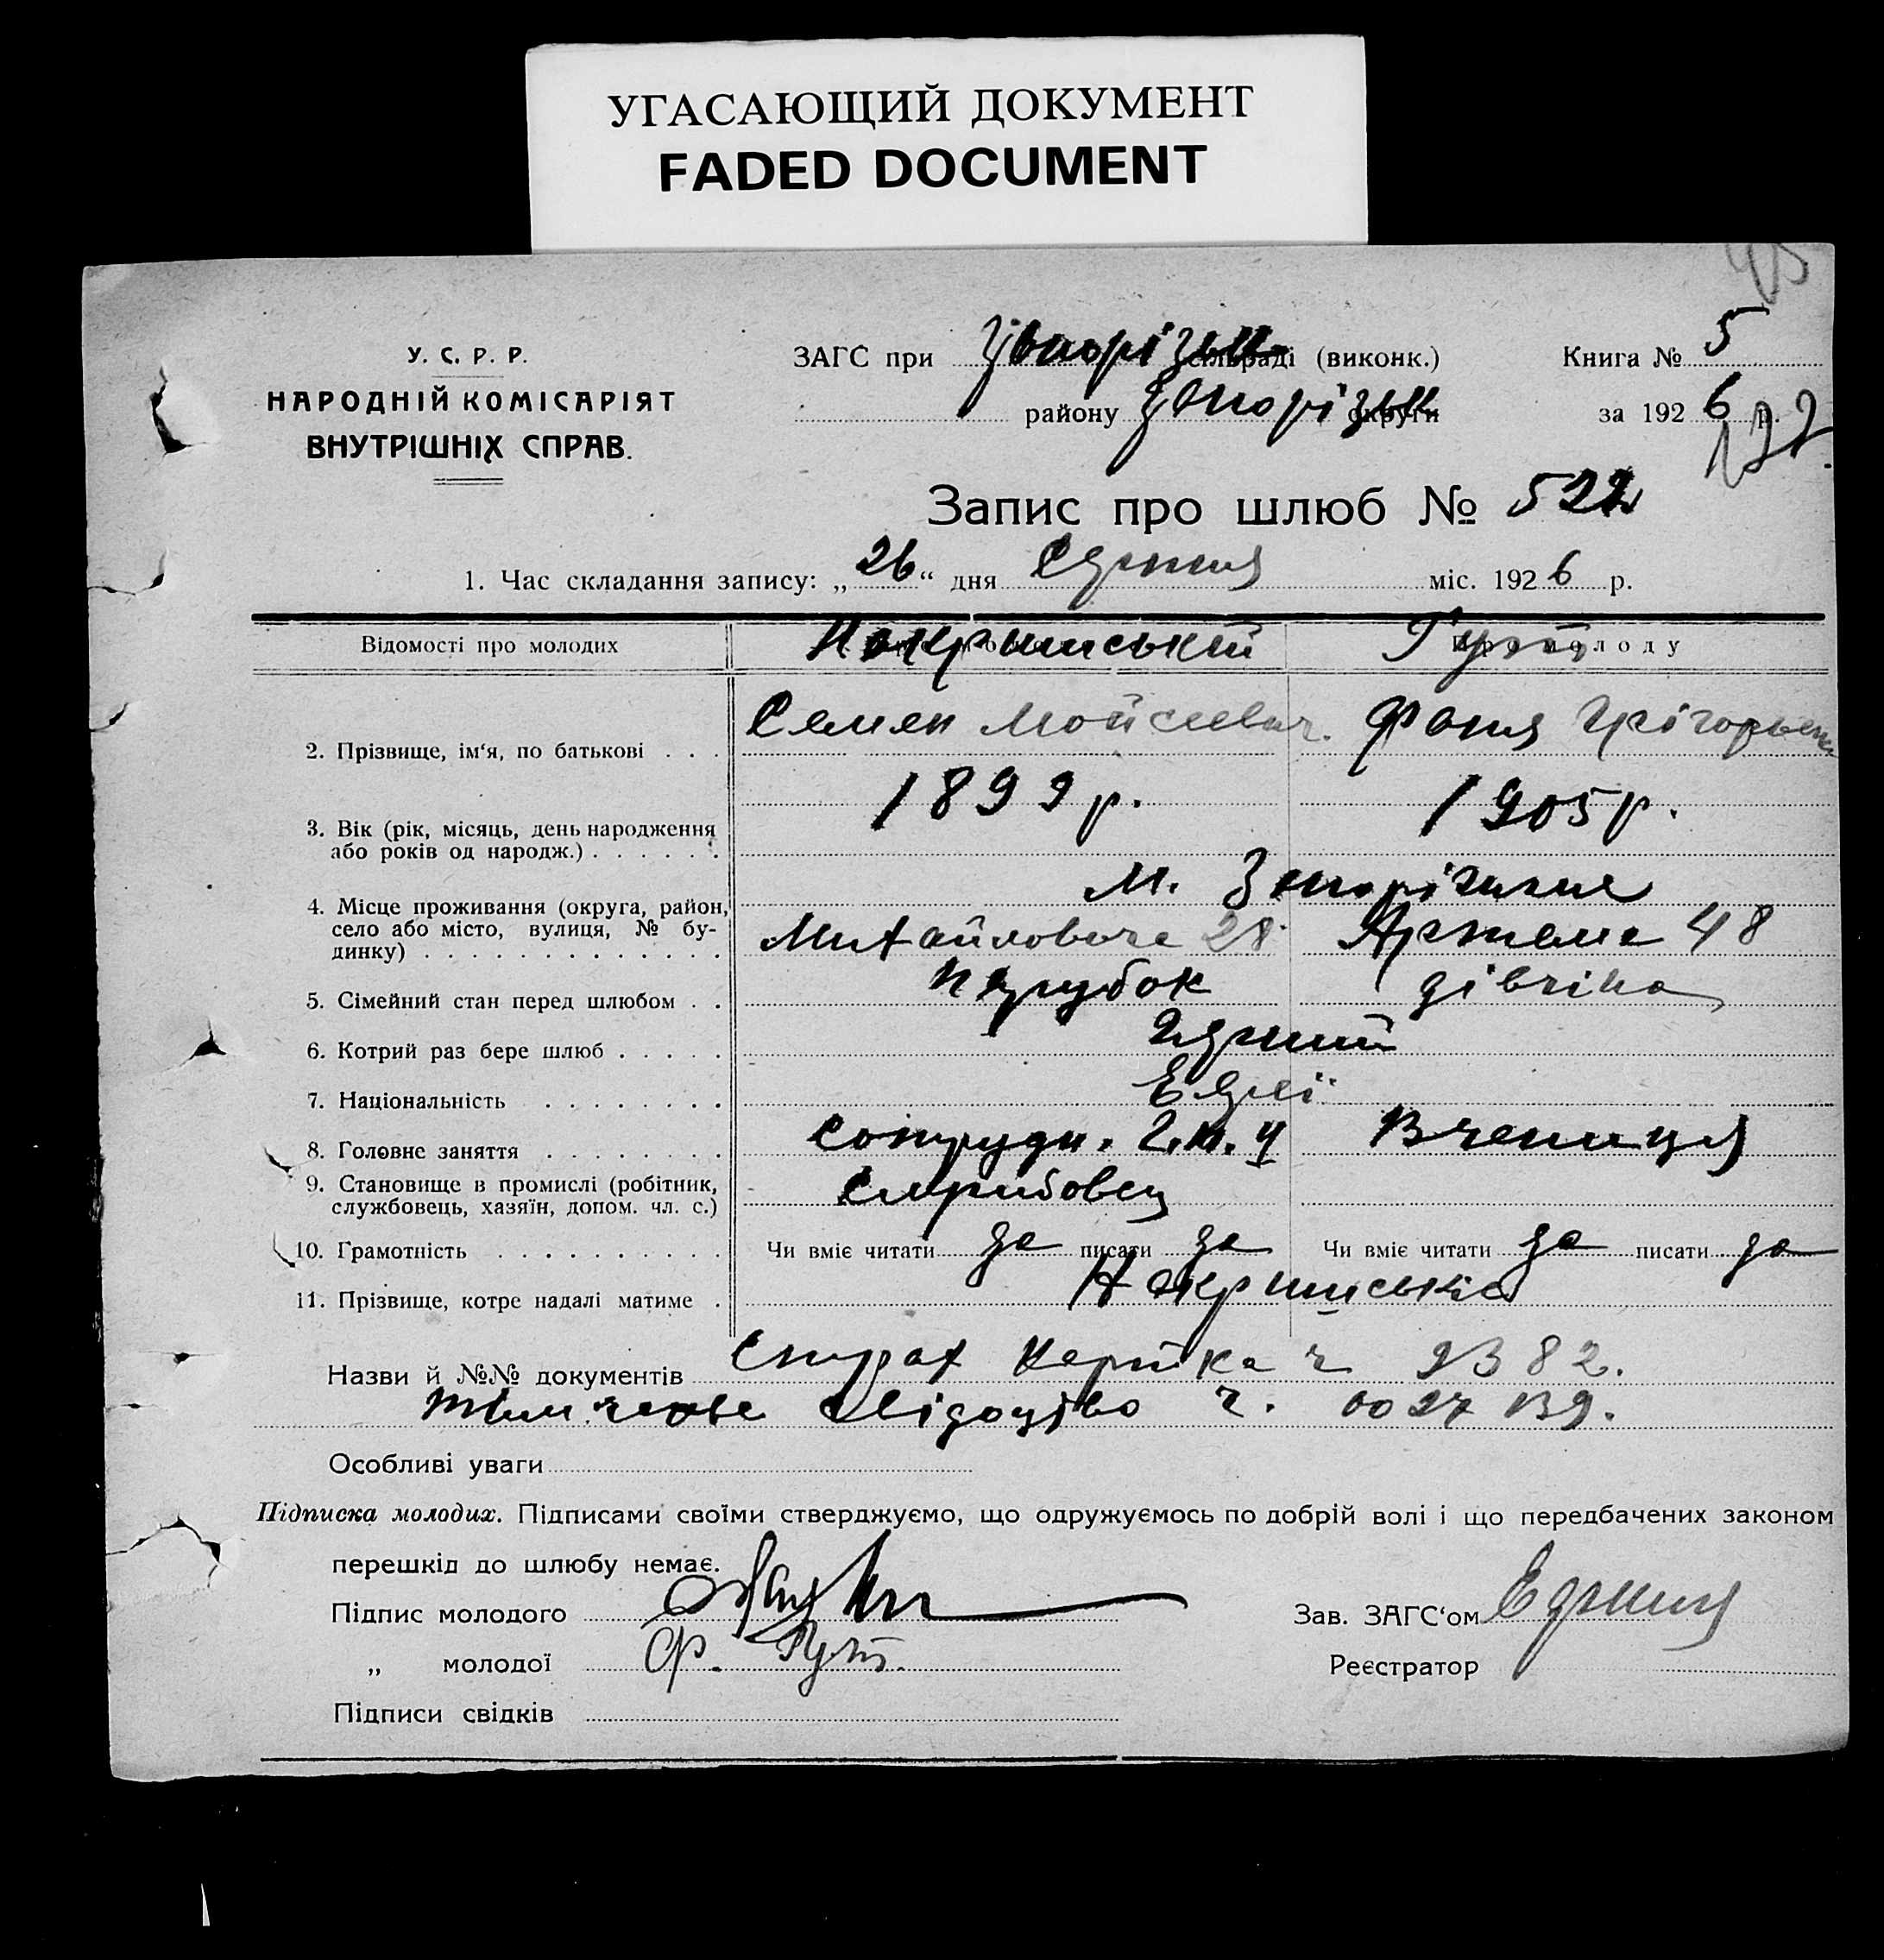 УГАСАЮЩИЙ ДОКУМЕНТ
FADED DOCUMENT
У. С. Р. Р.
НАРОДНІЙ КОМІСАРІЯТ
ВНУТРІШНІХ СПРАВ.
ЗАГС при сільраді (виконк.)
району округи
Книга № 5
за 1926 р.
122.
Запис про шлюб № 522
1. Час складання запису: „26“ дня Серпня міс. 1926 р.
Відомості про молодих
Про молоду
Гут
2. Прізвище, ім‘я, по батькові . . .
Семен Мойсеевич. Фаня Грігорьевна
3. Вік (рік, місяць, день народження або років од народж.) . . . . . .
1899 р. 1905 р.
4. Місце проживання (округа, район, село або місто, вулиця, № будинку) . . . . . . . . . . . . .
м. Запоріжжя
28 Артема 48
5. Сімейний стан перед шлюбом . .
парубок дівчіна
6. Котрий раз бере шлюб . . . . .
7. Національність . . . . . . . .
Евреї
8. Головне заняття . . . . . . . .
Сотрудн. Вчениця
9. Становище в промислі (робітник, службовець, хазяїн, допом. чл. с.)
10. Грамотність . . . . . . . . . .
Чи вміє читати да писати да Чи вміє читати да писати да
11. Прізвище, котре надалі матиме .
Назви й №№ документів Страх картка ч 2382.
Тимчасове свідоцтво ч. 002739.
Особливі уваги
Підписка молодих. Підписами своїми стверджуємо, що одружуємось по добрій волі і що передбачених законом
перешкід до шлюбу немає.
Підпис молодого
„ молодої Ф. Гут.
Підписи свідків
Зав. ЗАГС‘ом
Реєстратор